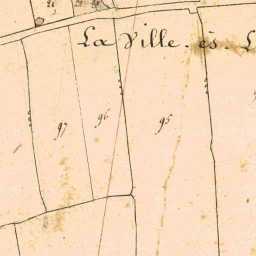 La Ville. ès. L
97
96
95